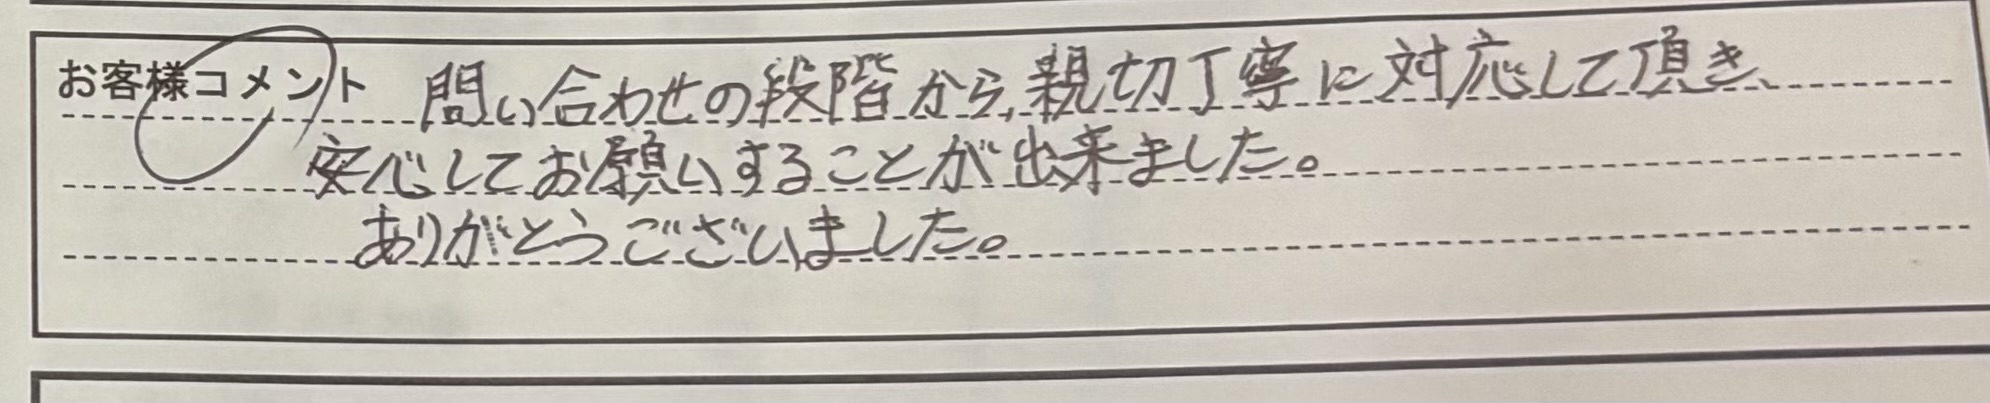 お客様コメント 問い合わせの段階から、親切丁寧に対応して頂き、
安心してお願いすることが出来ました。
ありがとうございました。